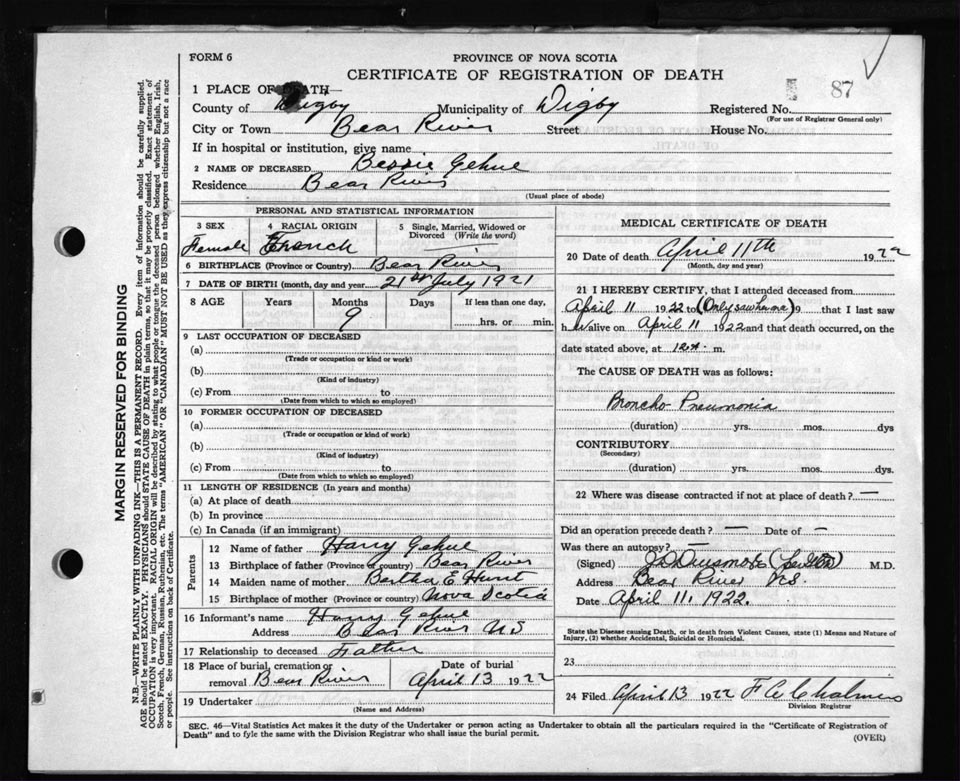 FORM 6
PROVINCE OF NOVA SCOTIA
87
CERTIFICATE OF REGISTRATION OF DEATH
1 PLACE OF DEATH—
County of Digby Municipality of Digby Registered No.
(For use of Registrar General only)
City or Town Bear River Street House No.
If in hospital or institution, give name
2 NAME OF DECEASED Bessie Gehue
Residence Bear River
(Usual place of abode)
PERSONAL AND STATISTICAL INFORMATION
3 SEX 4 RACIAL ORIGIN 5 Single, Married, Widowed or Divorced (Write the word)
Female French
6 BIRTHPLACE (Province or Country) Bear River
7 DATE OF BIRTH (month, day and year) 21st July 1921
8 AGE Years Months Days If less than one day,
9 hrs. or min.
9 LAST OCCUPATION OF DECEASED
(a)
(Trade or occupation or kind or work)
(b)
(Kind of industry)
(c) From to
(Date from which to which so employed)
10 FORMER OCCUPATION OF DECEASED
(a)
(Trade or occupation or kind of work)
(b)
(Kind of industry)
(c) From to
(Date from which to which so employed)
11 LENGTH OF RESIDENCE (In years and months)
(a) At place of death
(b) In province
(c) In Canada (if an immigrant)
Parents
12 Name of father Harry Gehue
13 Birthplace of father (Province or country) Bear River
14 Maiden name of mother Bertha E Hunt
15 Birthplace of mother (Province or country) Nova Scotia
16 Informant's name Harry Gehue
Address Bear River N S
17 Relationship to deceased Father
18 Place of burial, cremation or Date of burial
removal Bear River April 13 1922
19 Undertaker
(Name and Address)
MEDICAL CERTIFICATE OF DEATH
20 Date of death April 11th 1922
(Month, day and year)
21 I HEREBY CERTIFY, that I attended deceased from
April 11 1922 to (Only saw once) 9 that I last saw
h alive on April 11 1922 and that death occurred, on the
date stated above, at 12 A. m.
The CAUSE OF DEATH was as follows:
Broncho Pneumonia
(duration) yrs. mos. dys
CONTRIBUTORY
(Secondary)
(duration) yrs. mos. dys.
22 Where was disease contracted if not at place of death? —
Did an operation precede death? — Date of —
Was there an autopsy? —
(Signed) M.D.
Address Bear River N.S.
Date April 11, 1922.
State the Disease causing Death, or in death from Violent Causes, state (1) Means and Nature of
Injury, (2) whether Accidental, Suicidal or Homicidal.
23
24 Filed April 13 1922 F A Chalmers
Division Registrar
SEC. 46—Vital Statistics Act makes it the duty of the Undertaker or person acting as Undertaker to obtain all the particulars required in the "Certificate of Registration of
Death" and to fyle the same with the Division Registrar who shall issue the burial permit.
(OVER)
MARGIN RESERVED FOR BINDING
N.B.—WRITE PLAINLY WITH UNFADING INK—THIS IS A PERMANENT RECORD. Every item of information should be carefully supplied.
AGE should be stated EXACTLY. PHYSICIANS should STATE CAUSE OF DEATH in plain terms, so that it may be properly classified. Exact statement of
OCCUPATION is very important. RACIAL ORIGIN will be described by stating to what people or tongue the deceased person belonged whether English, Irish,
Scotch, French, German, Russian, Ruthenian, etc. The terms "AMERICAN" OR "CANADIAN" MUST NOT BE USED as they express citizenship but not a race
or people. See instructions on back of Certificate.